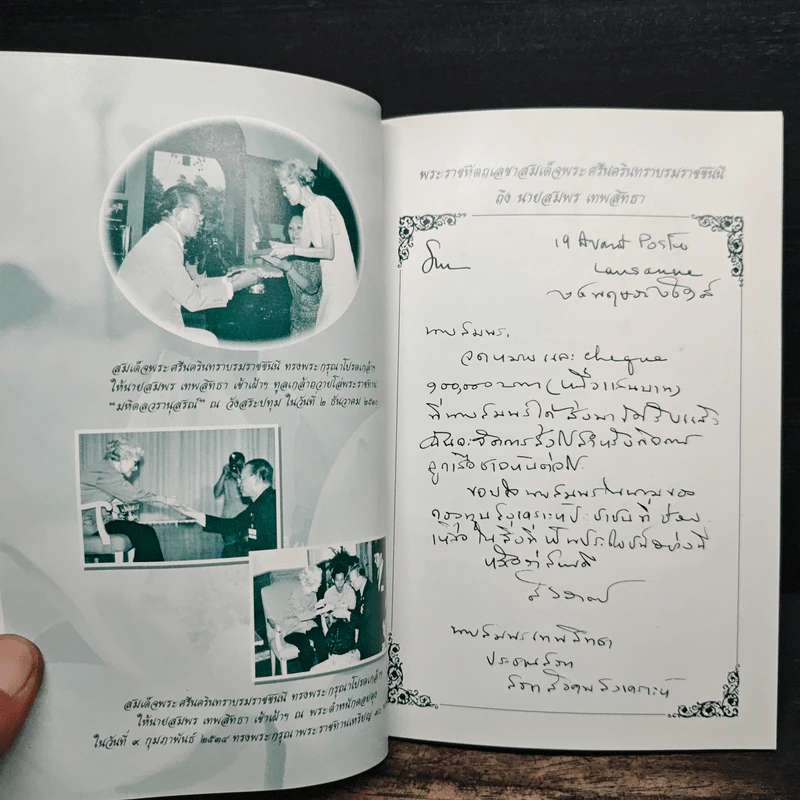 สมเด็จพระศรีนครินทราบรมราชชินนี ทรงพระกรุณาโปรดเกล้าฯ
ให้นายสมพร เทพสิทธา เข้าเฝ้าฯ ทูลเกล้าถวายโล่พระราชทาน
"มหิตลวรานุสรณ์" ณ วังสระปทุม ในวันที่ ๒ ธันวาคม
สมเด็จพระศรีนครินทราบรมราชชินนี ทรงพระกรุณาโปรดเกล้าฯ
ให้นายสมพร เทพสิทธา เข้าเฝ้าฯ ณ พระตำหนักดอยตุง
ในวันที่ ๙ กุมภาพันธ์ ๒๕๓๔ ทรงพระกรุณาพระราชทานเหรียญ
พระราชหัตถเลขาสมเด็จพระศรีนครินทราบรมราชชินนี
ถึง นายสมพร เทพสิทธา
19 Avant Poste
Lausanne
นายสมพร,
จดหมายและ cheque
๑๐๐,๐๐๐ บาท (หนึ่งแสนบาท)
ที่นายสมพรได้ส่งมาได้รับแล้ว
ฉันจะจัดการส่งไปสำหรับกิจการ
ลูกเสือชาวบ้านต่อไป
ขอบใจนายสมพรในนามของ
กองทุนสงเคราะห์ประชาชนที่ช่วย
เหลือในสิ่งที่เป็นประโยชน์อย่างนี้
นายสมพร เทพสิทธา
ประธานสภา
สภาสังคมสงเคราะห์